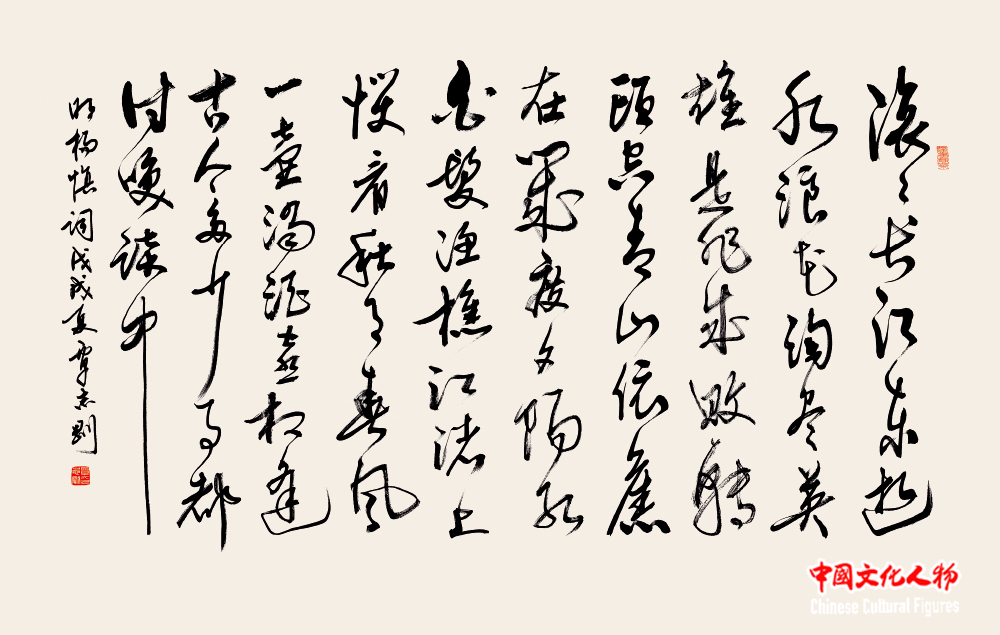 滚〻长江东逝
水浪花淘尽英
雄是非成败转
头空青山依旧
在几度夕阳红
白发渔樵江渚上
惯看秋月春风
一壶浊酒喜相逢
古今多少事都
付笑谈中
明杨慎词戊戌夏覃志刚
中国文化人物
Chinese Cultural Figures